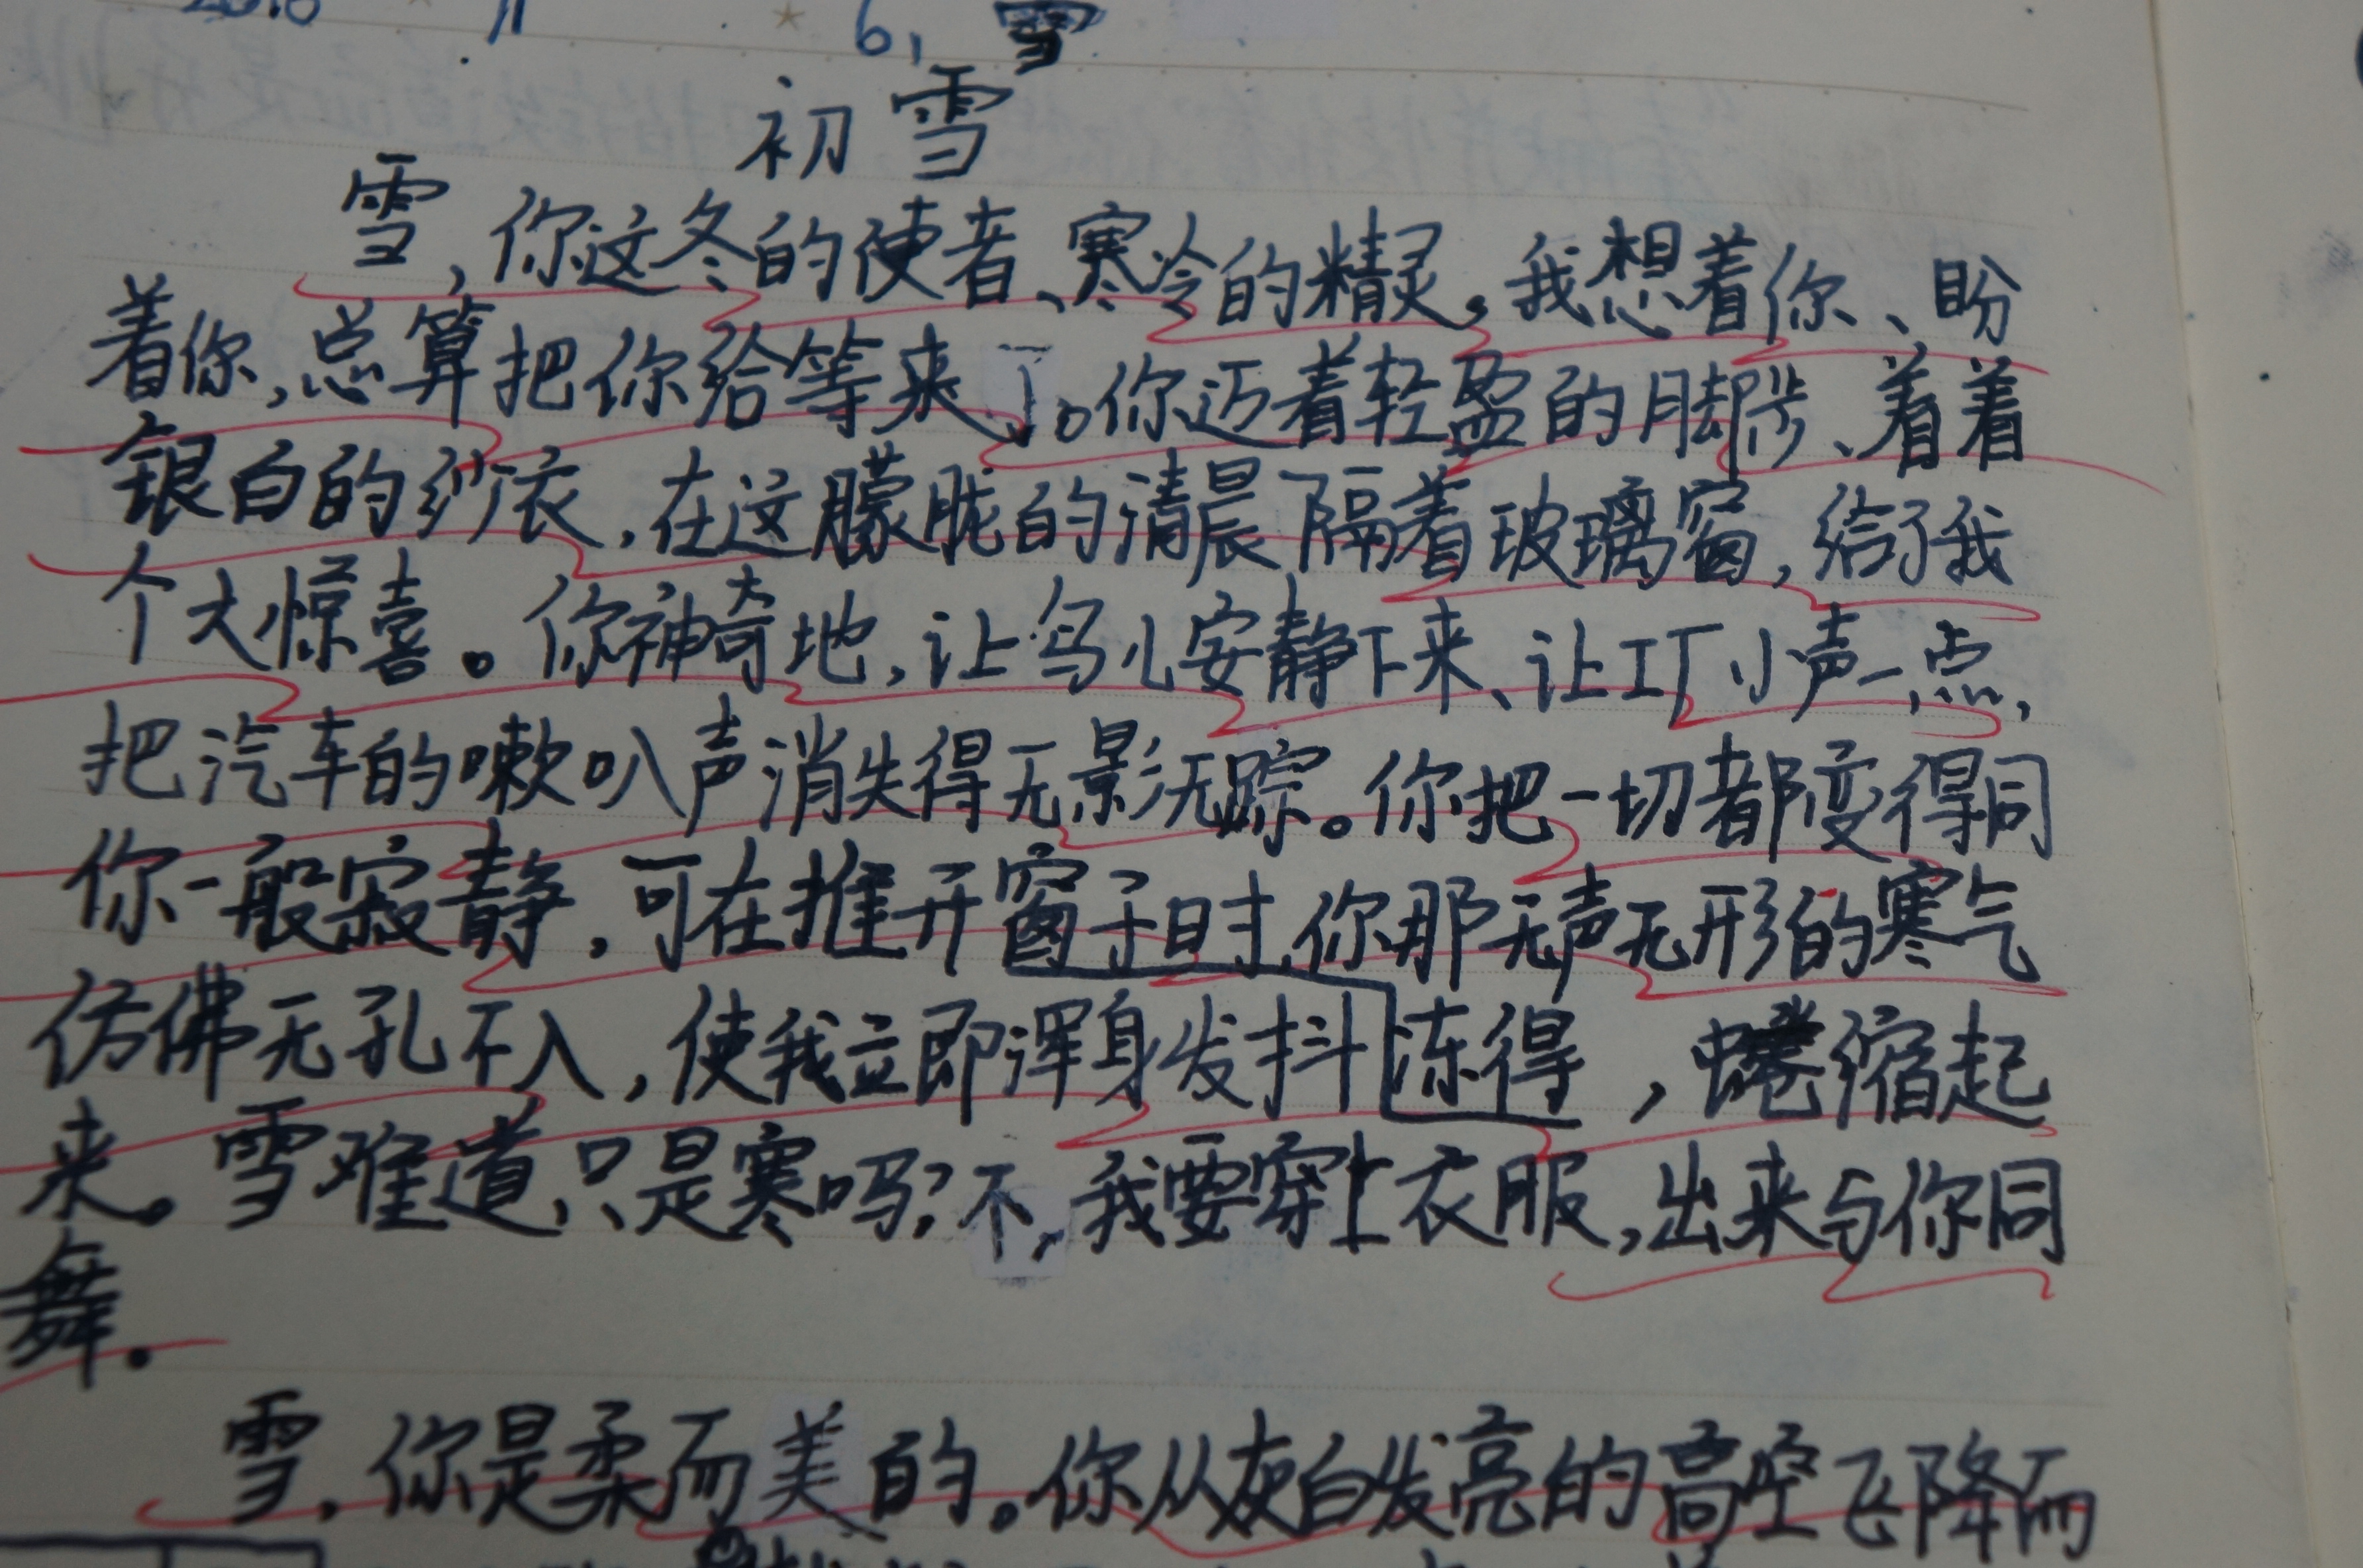 6, 雪
初雪
雪，你这冬的使者、寒冷的精灵。我想着你、盼
着你，总算把你给等来了。你迈着轻盈的脚步、着着
银白的纱衣，在这朦胧的清晨隔着玻璃窗，给了我
个大惊喜。你神奇地，让鸟儿安静下来、让工厂小声一点，
把汽车的嗽叭声消失得无影无踪。你把一切都变得同
你一般寂静。可在推开窗子时，你那无声无形的寒气
仿佛无孔不入，使我立即浑身发抖冻得，蜷缩起
来。雪难道只是寒吗？不，我要穿上衣服，出来与你同
舞。
雪，你是柔而美的。你从灰白发亮的高空飞降而